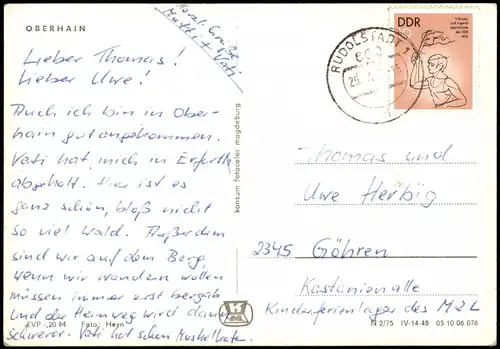 OBERHAIN
Herzl. Grüße
Mutti + Vati
Lieber Thomas!
Lieber Uwe!
Auch ich bin in Ober-
hain gut angekommen.
Vati hat mich in Erfurth
abgeholt. Hier ist es
ganz schön, bloß nicht
so viel Wald. Außerdem
sind wir auf dem Berg,
wenn wir wandern wollen
müssen immer erst bergab
und der Heimweg wird dann
schwerer. Vati hat schon Muskelkater.
EVP -,20 M Foto: Heyn
konsüm fotoatlas magdeburg
RUDOLSTADT 1
682
DDR
10
V. Kinder-
und Jugend-
spartakiade
der DDR
1975
Thomas und
Uwe Herbig
2345 Göhren
Kastanienalle
Kinderferienlager des M L
N 2/75 IV-14-48 05 10 06 076